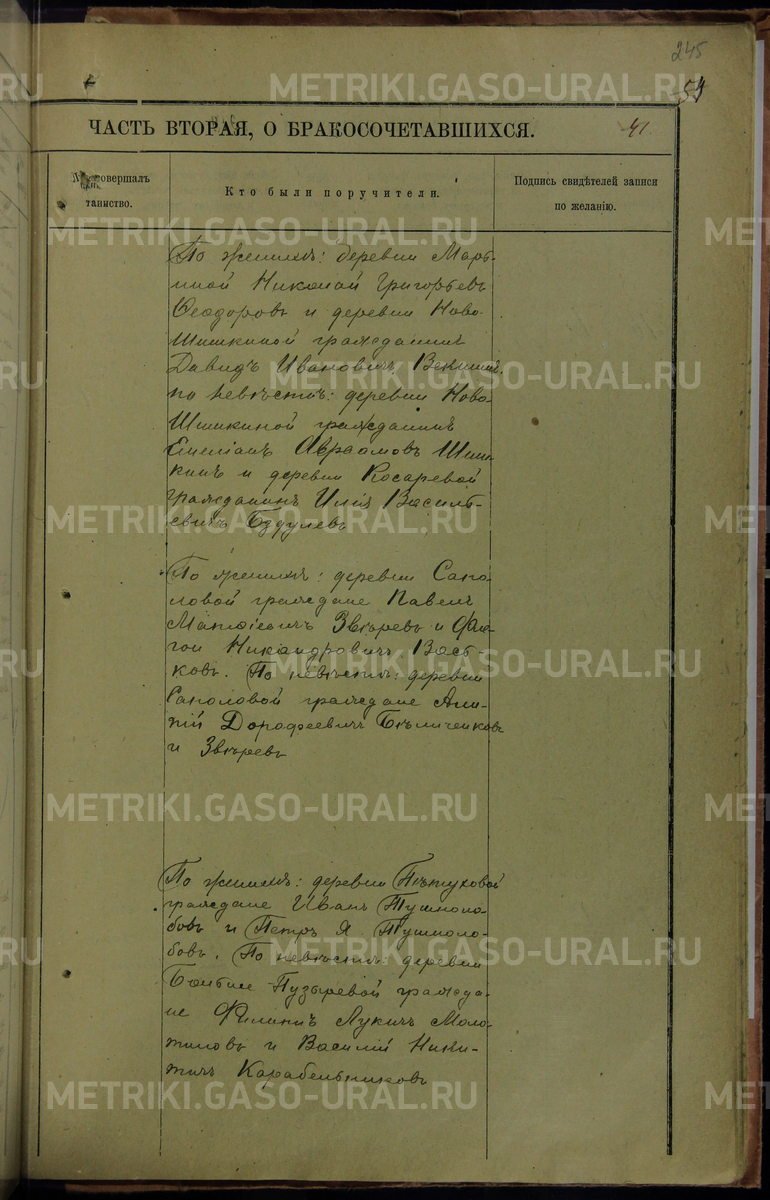 245
54
ЧАСТЬ ВТОРАЯ, О БРАКОСОЧЕТАВШИХСЯ.
41
совершалъ
таинство.
Кто были поручители.
Подпись свидѣтелей записи
по желанію.
По женихѣ: деревни Марь-
иной Николай Григорьевъ
Ѳеодоровъ и деревни Ново-
Шишкиной гражданинъ
Давидъ Ивановичъ
по невѣстѣ: деревни Ново-
Шишкиной гражданинъ
Емеліанъ Авраамовъ Шиш-
кинъ и деревни Косаревой
гражданинъ Илія Василь-
евичъ Бздулевъ
По женихѣ: деревни Сапо-
ловой граждане Павелъ
Матѳіевичъ Звѣревъ и
Никандровичъ Вась-
ковъ. По невѣстѣ: деревни
Саполовой граждане
Дорофеевичъ Бѣличенковъ
и Звѣревъ
По женихѣ: деревни Пѣтуховой
граждане Иванъ Тушноло-
бовъ и Петръ Я. Тушноло-
бовъ. По невѣстѣ: деревни
Пузыревой гражда-
не Филиппъ Лукичъ Моло-
тиловъ и Василій Ники-
тичъ Карабельниковъ
METRIKI.GASO-URAL.RU